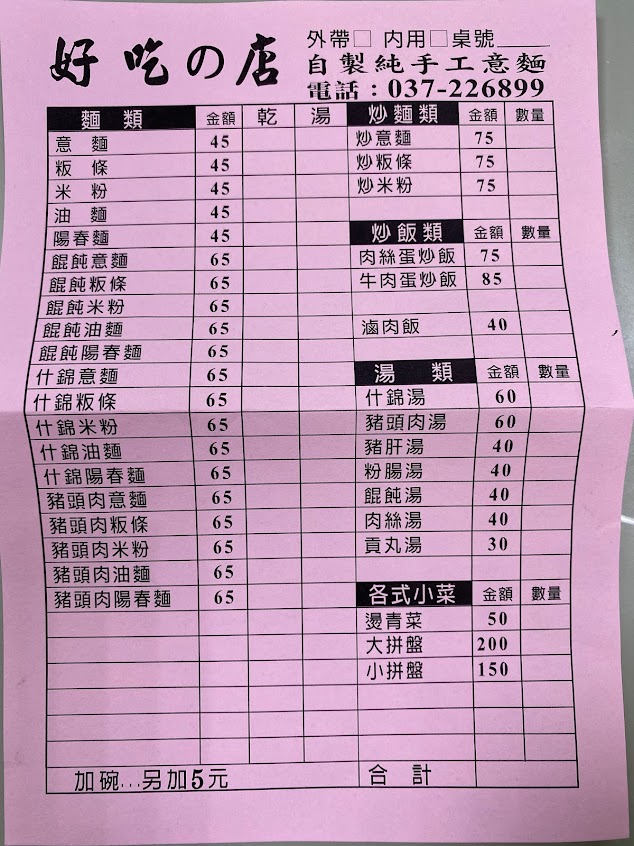 好吃の店
外帶□ 內用□ 桌號____
自製純手工意麵
電話：037-226899
麵類 金額 乾 湯
意麵 45
粄條 45
米粉 45
油麵 45
陽春麵 45
餛飩意麵 65
餛飩粄條 65
餛飩米粉 65
餛飩油麵 65
餛飩陽春麵 65
什錦意麵 65
什錦粄條 65
什錦米粉 65
什錦油麵 65
什錦陽春麵 65
豬頭肉意麵 65
豬頭肉粄條 65
豬頭肉米粉 65
豬頭肉油麵 65
豬頭肉陽春麵 65
加碗...另加5元
炒麵類 金額 數量
炒意麵 75
炒粄條 75
炒米粉 75
炒飯類 金額 數量
肉絲蛋炒飯 75
牛肉蛋炒飯 85
滷肉飯 40
湯類 金額 數量
什錦湯 60
豬頭肉湯 60
豬肝湯 40
粉腸湯 40
餛飩湯 40
肉絲湯 40
貢丸湯 30
各式小菜 金額 數量
燙青菜 50
大拼盤 200
小拼盤 150
合計